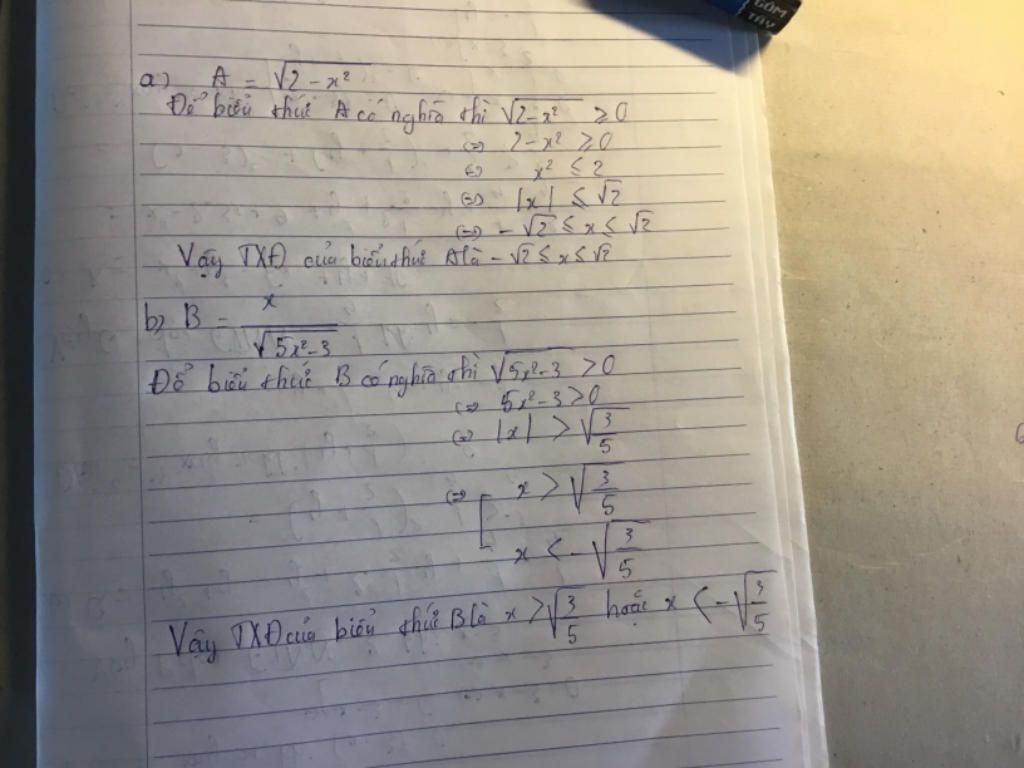 a) A = √(2 - x²)
Để biểu thức A có nghĩa thì √(2-x²) ≥ 0
(=) 2 - x² ≥ 0
(=) x² ≤ 2
(=) |x| ≤ √2
(=) -√2 ≤ x ≤ √2
Vậy TXĐ của biểu thức A là -√2 ≤ x ≤ √2
b) B = x / √(5x²-3)
Để biểu thức B có nghĩa thì √(5x²-3) > 0
(=) 5x²-3 > 0
(=) |x| > √(3/5)
(=) [ x > √(3/5)
x < -√(3/5)
Vậy TXĐ của biểu thức B là x > √(3/5) hoặc x < -√(3/5)
GÔM
TẨY